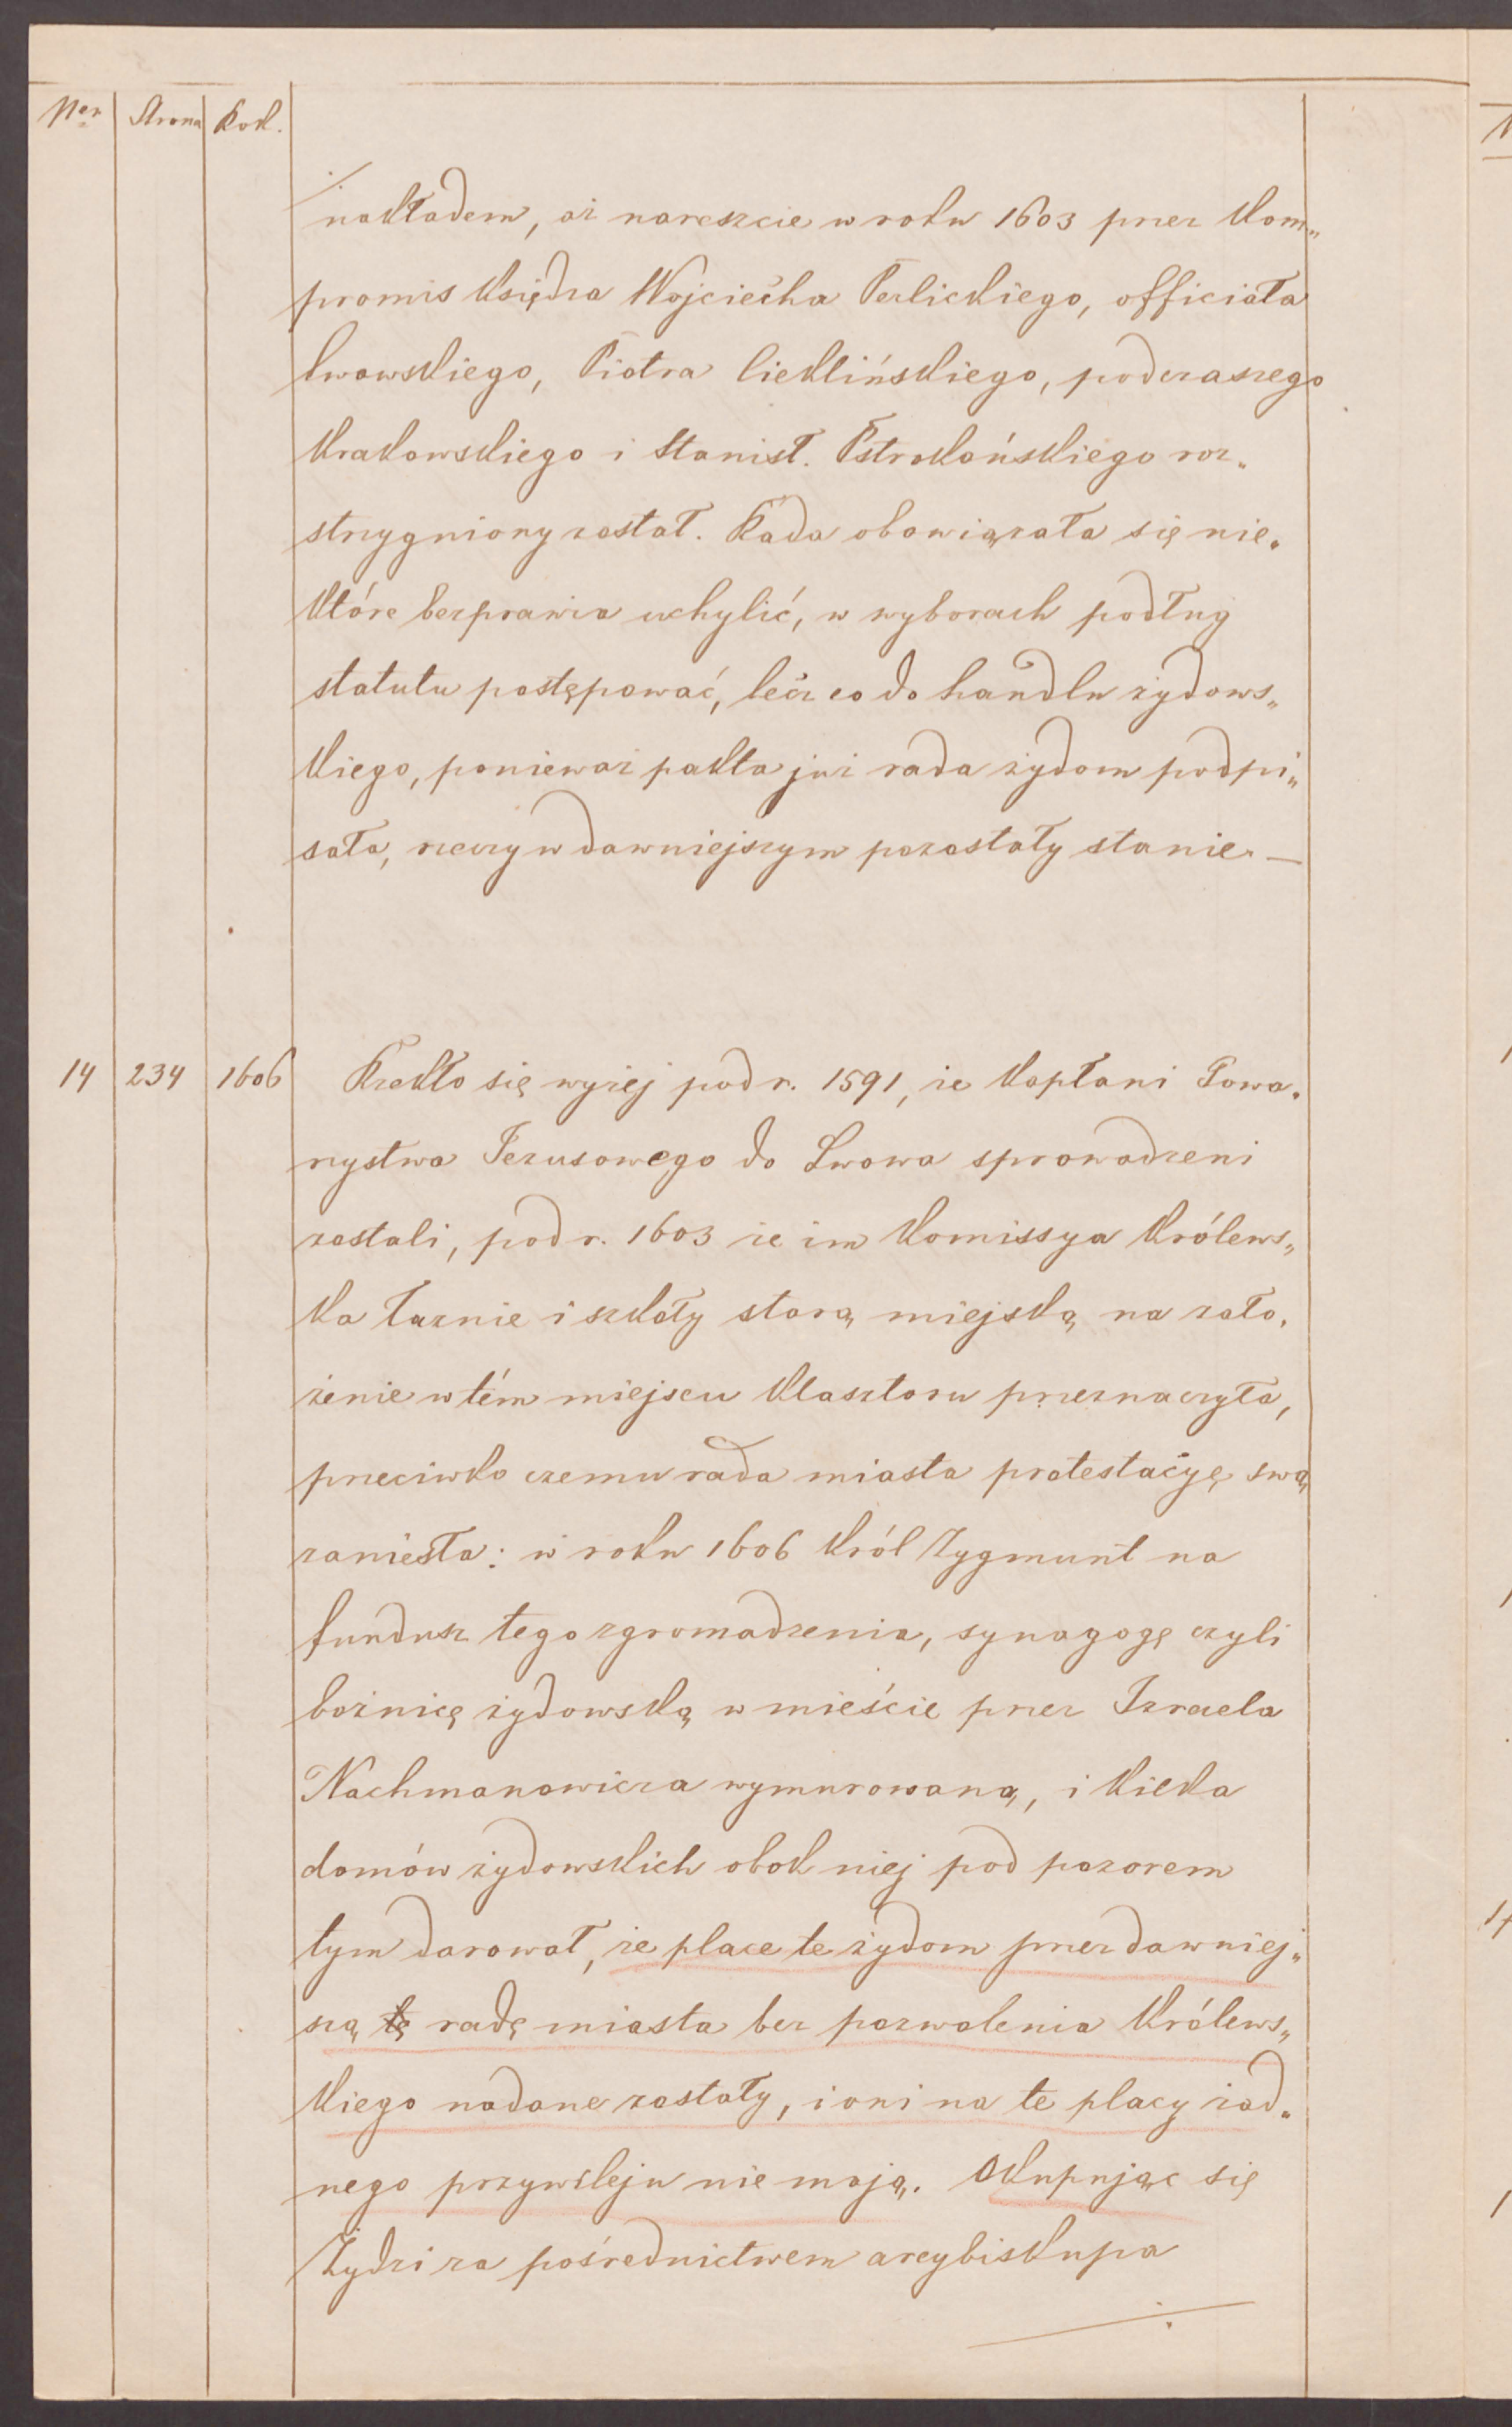 Ner Strona Rok.
nakładem, aż nareszcie w roku 1603 przez kom„
promis księdza Wojciecha Perlickiego, officiała
lwowskiego, Piotra Cieklińskiego, podczaszego
krakowskiego i Stanisł. Pstrokońskiego roz„
strzygniony został. Rada obowiązała się nie„
które bezprawia uchylić, w wyborach podług
statutu postępować, lecz co do handlu żydows„
kiego, ponieważ pakta już rada żydom podpi„
sała, rzeczy w dawniejszym pozostały stanie. —
14 234 1606 Rzekło się wyżej pod r. 1591, że kapłani Towa„
rzystwa Jezusowego do Lwowa sprowadzeni
zostali, pod r. 1603 że im komissya królews„
ka łaznie i szkoły starą miejską na zało„
żenie w tém miejscu klasztoru przeznaczyła,
przeciwko czemu rada miasta protestacyę swą
zaniesła: w roku 1606 król Zygmunt na
fundusz tego zgromadzenia, synagogę czyli
bożnicę żydowską w mieście przez Izraela
Nachmanowicza wymurowaną, i kilka
domów żydowskich obok niej pod pozorem
tym darował, że place te żydom przez dawniej„
szą tę radę miasta bez pozwolenia królews„
kiego nadane zostały, i oni na te placy żad„
nego przywileju nie mają. Okupując się
Żydzi za pośrednictwem arcybiskupa